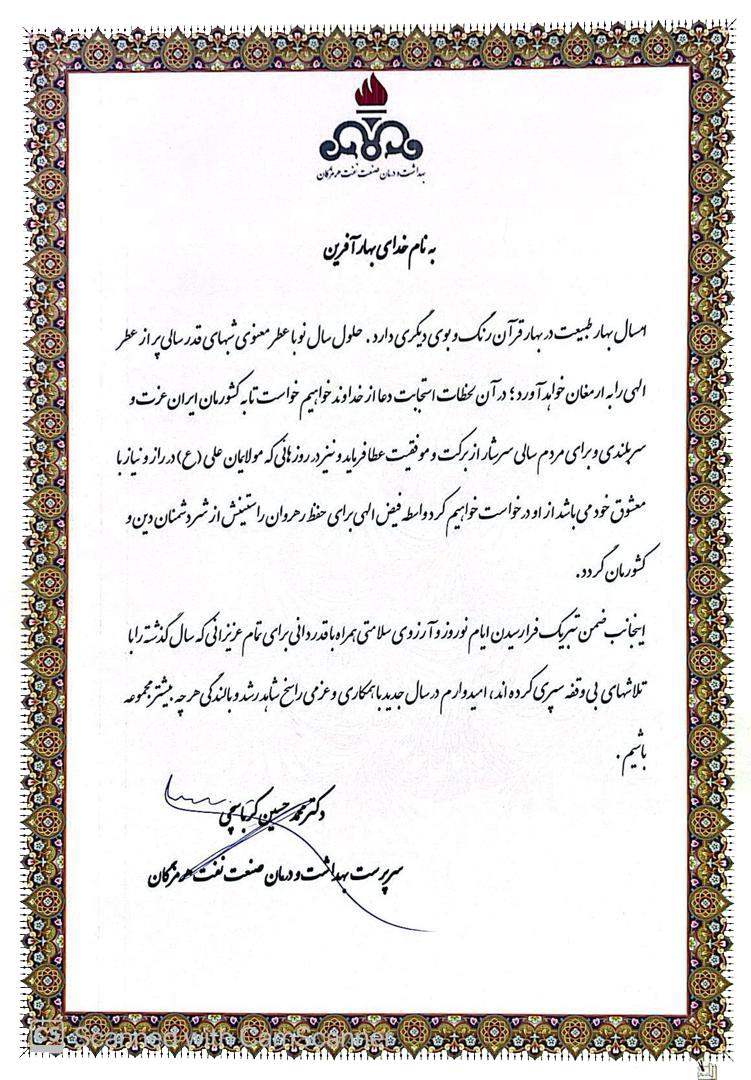 بهداشت و درمان صنعت نفت هرمزگان
به نام خدای بهار آفرین
امسال بهار طبیعت در بهار قرآن رنگ و بوی دیگری دارد. حلول سال نو با عطر معنوی شبهای قدر سالی پر از عطر
الهی را به ارمغان خواهد آورد؛ در آن لحظات استجابت دعا از خداوند خواهیم خواست تا به کشورمان ایران عزت و
سربلندی و برای مردم سالی سرشار از برکت و موفقیت عطا فرماید و نیز در روزهائی که مولایمان علی (ع) در راز و نیاز با
معشوق خود می باشد از او درخواست خواهیم کرد واسطه فیض الهی برای حفظ رهروان راستینش از شر دشمنان دین و
کشورمان گردد.
اینجانب ضمن تبریک فرارسیدن ایام نوروز و آرزوی سلامتی همراه با قدردانی برای تمام عزیزانی که سال گذشته را با
تلاشهای بی وقفه سپری کرده اند، امیدوارم در سال جدید با همکاری و عزمی راسخ شاهد رشد و بالندگی هر چه بیشتر مجموعه
باشیم.
دکتر محمد حسین کرباسچی
سرپرست بهداشت و درمان صنعت نفت هرمزگان
CS Scanned with CamScanner